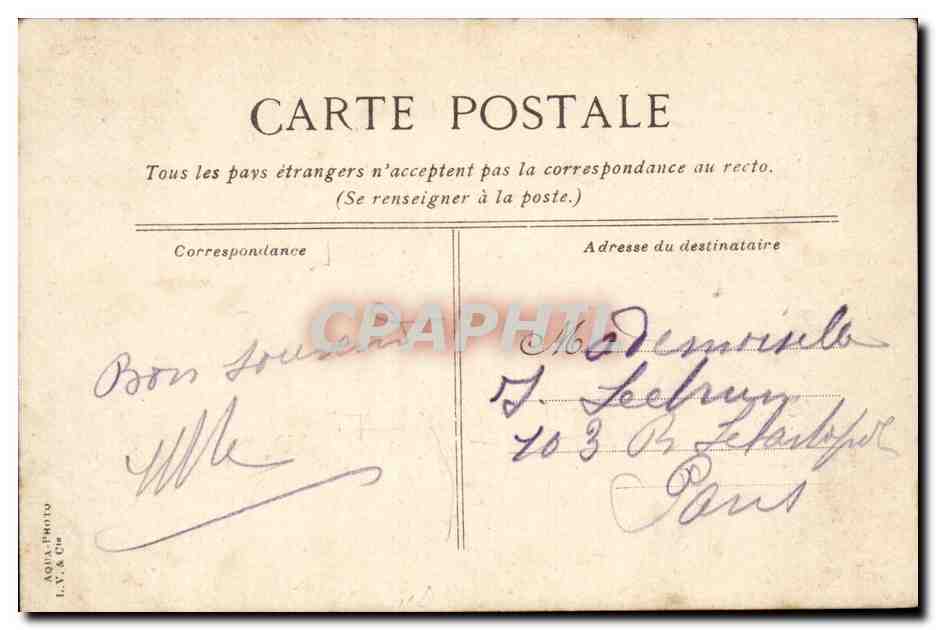 CARTE POSTALE
Tous les pays étrangers n'acceptent pas la correspondance au recto.
(Se renseigner à la poste.)
Correspondance
Adresse du destinataire
CPAPHIL
Bon souvenir
Mademoiselle
J. Lebrun
103 R Sébastopol
Paris
AQUA-PHOTO
L. V. & Cie